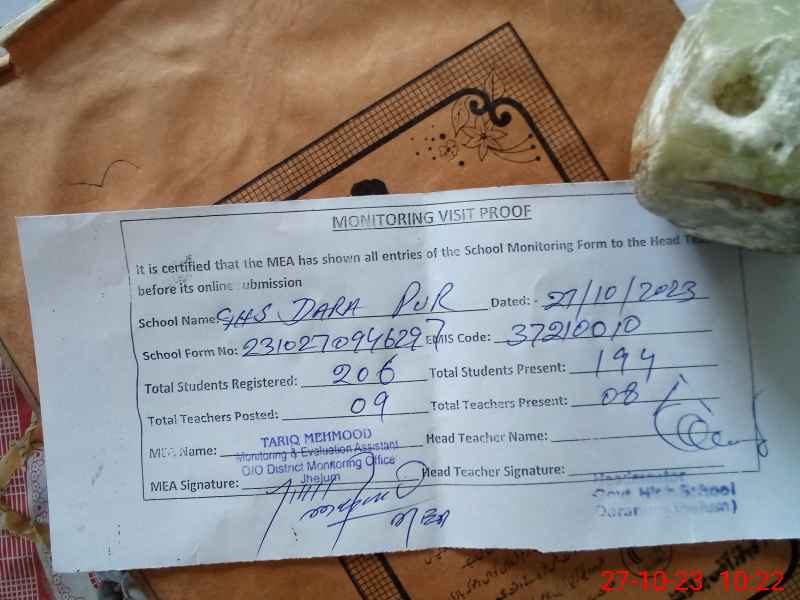 MONITORING VISIT PROOF
It is certified that the MEA has shown all entries of the School Monitoring Form to the Head
before its online submission
School Name: GHS DARA PUR Dated: - 27/10/2023
School Form No: 2310270946297 EMIS Code: 37210010
Total Students Registered: 206 Total Students Present: 194
Total Teachers Posted: 09 Total Teachers Present: 08
MEA Name: TARIQ MEHMOOD Head Teacher Name:
Monitoring & Evaluation Assistant
O/O District Monitoring Office
Jhelum
MEA Signature: Head Teacher Signature:
Headmaster
Govt High School
MEA
27-10-23 10:22